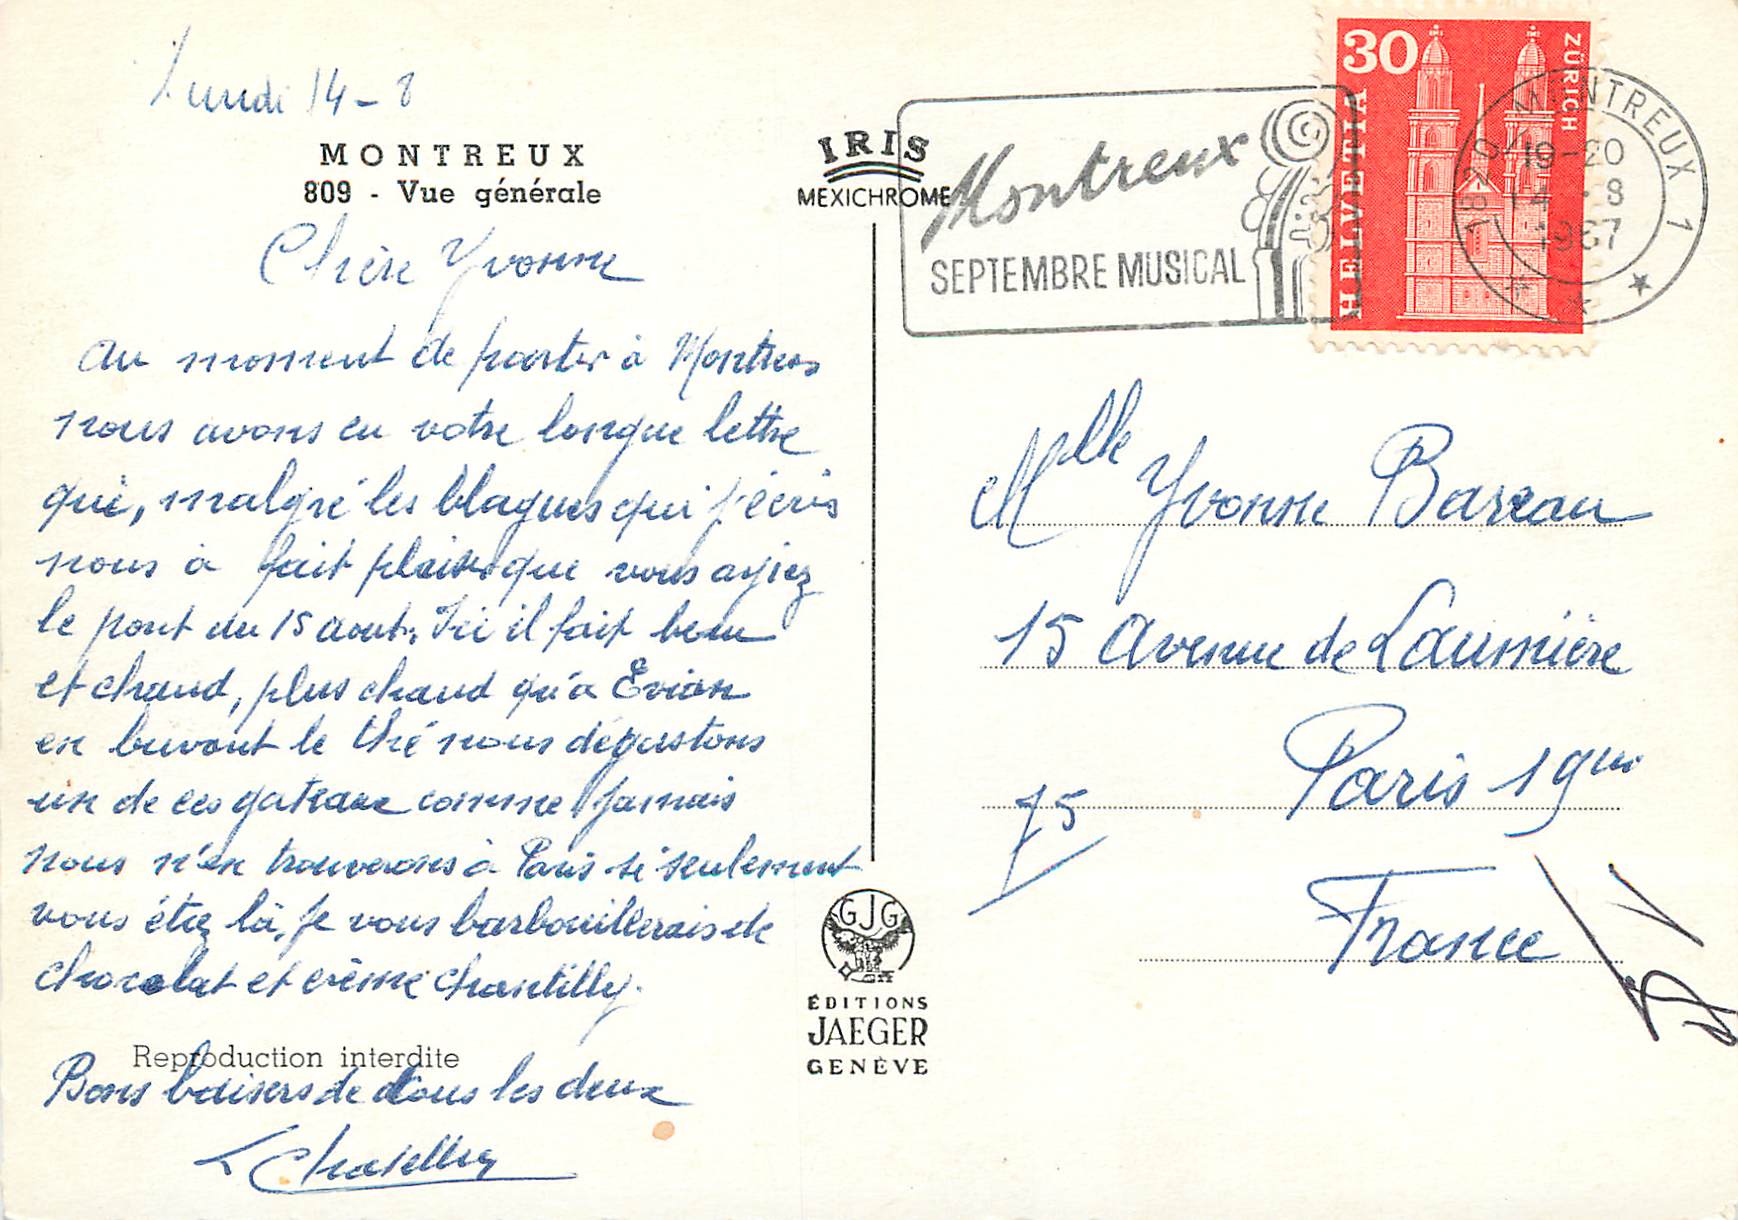 Lundi 14-8
MONTREUX
809 - Vue générale
Chère Yvonne
au moment de partir à Montreux
nous avons eu votre longue lettre
qui, malgré les blagues qui j'écris
nous a fait plaisir que vous ayiez
le pont du 15 aout. Ici il fait beau
et chaud, plus chaud qu'a Evian
en buvant le thé nous dégustons
un de ces gateaux comme jamais
nous n'en trouverons à Paris si seulement
vous étiez là, je vous barbouillerais de
chocolat et crème chantilly.
Reproduction interdite
Bons baisers de tous les deux
IRIS
MEXICHROME
GJG
ÉDITIONS
JAEGER
GENÈVE
Montreux
SEPTEMBRE MUSICAL
30
HELVETIA
ZÜRICH
1820 MONTREUX 1
19-20
14.-8
1967
Mlle Yvonne Bareau
15 Avenue de Laumière
Paris 19me
75
France